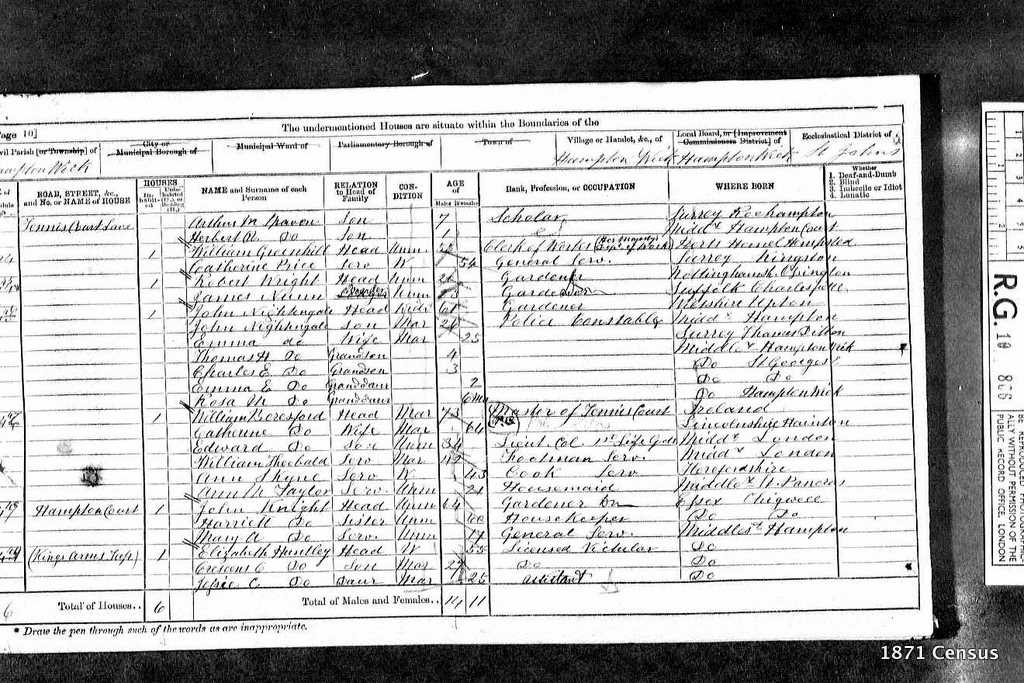 Page 10]
The undermentioned Houses are situate within the Boundaries of the
Civil Parish [or Township] of
City or Municipal Borough of
Municipal Ward of
Parliamentary Borough of
Town of
Village or Hamlet, &c., of
Local Board, or [Improvement Commissioners District] of
Ecclesiastical District of
Hampton Wick Hampton Wick Hampton Wick St Johns
ROAD, STREET, &c., and No. or NAME of HOUSE
HOUSES
Inhabited
NAME and Surname of each Person
RELATION to Head of Family
CONDITION
AGE of
Males Females
Rank, Profession, or OCCUPATION
WHERE BORN
Whether
1. Deaf-and-Dumb
2. Blind
3. Imbecile or Idiot
4. Lunatic
Tennis Court Lane Arthur M Son 7 Scholar Surrey Roehampton
Herbert Do Son 1 Middx Hampton Court
1 William Greenhill Head Unm Clerk of Works Herts Hemel Hempsted
Catherine Price Serv W 54 General Serv. Surrey Kingston
1 Robert Wright Head Unm Gardener
James Nunn Lodger Unm Gardener Suffolk
1 John Nightengale Head Wid 61 Gardener Wiltshire Upton
John Nightingale Son Mar 26 Police Constable Midd Hampton
Emma do Wife Mar 25 Surrey Thames Ditton
Thomas H Do Grandson 4 Middx Hampton Wick
Charles E Do Grandson 3 Do St Georges
Emma E Do Granddaur 2 Do Do
Rosa M Do Granddaur Do Hampton Wick
1 William Beresford Head Mar 73 Master of Tennis Court Ireland
Catherine Do Wife Mar 64 Lincolnshire
Edward Do Son Unm 34 Lieut. Col 1st Life Gds Middx London
William Theobald Serv Mar 42 Footman Serv. Midd London
Ann Serv W 43 Cook Serv Herefordshire
Ann M Taylor Serv. Unm 21 Housemaid Middlex St Pancras
Hampton Court 1 John Knight Head Unm 64 Gardener Dn Essex Chigwell
Harriett Do Sister Unm 60 Housekeeper Do Do
Mary A Do Serv. Unm 17 General Serv. Middlex Hampton
(Kings Arms Tap) 1 Elizabeth Huntley Head W 55 Licensed Victular Do
Do Son Mar 27 Do Do
Jessie C. Do Daur Mar 25 assistant Do
6 Total of Houses.. 6 Total of Males and Females.. 14 11
* Draw the pen through such of the words as are inappropriate.
R.G. 10 866
BE REPRODUCED PHOTOGRAPHIC-
ALLY WITHOUT PERMISSION OF THE
PUBLIC RECORD OFFICE, LONDON
1871 Census